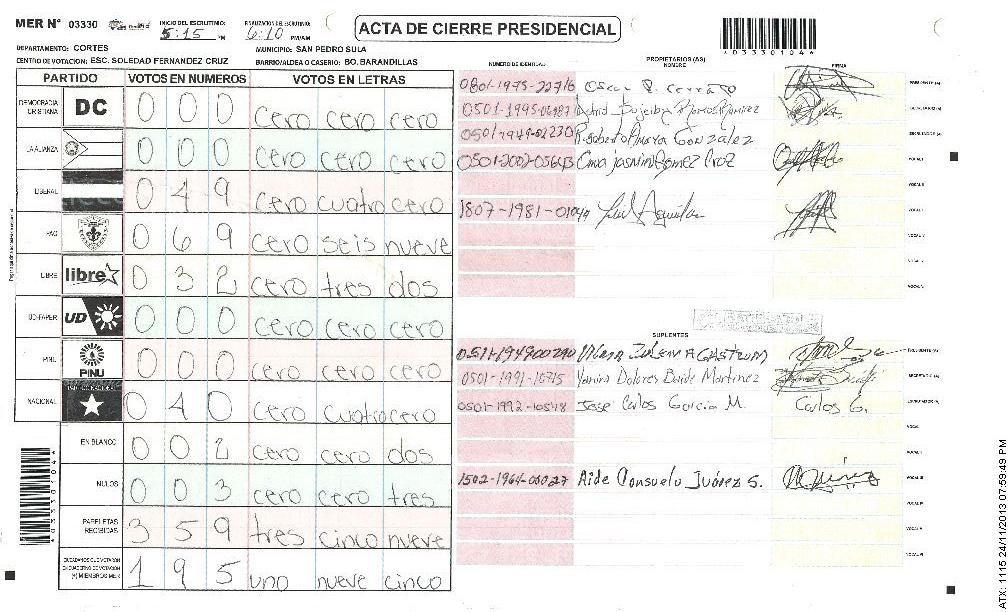 MER N° 03330 INICIO DEL ESCRUTINIO: 5:15 PM FINALIZACION DEL ESCRUTINIO: 6:10 PM/AM
ACTA DE CIERRE PRESIDENCIAL
*03330104*
DEPARTAMENTO: CORTES MUNICIPIO: SAN PEDRO SULA
CENTRO DE VOTACION: ESC. SOLEDAD FERNANDEZ CRUZ BARRIO/ALDEA O CASERIO: BO. BARANDILLAS
PARTIDO VOTOS EN NUMEROS VOTOS EN LETRAS
DEMOCRACIA CRISTIANA DC 0 0 0 cero cero cero
LA ALIANZA 0 0 0 cero cero cero
LIBERAL 0 4 9 cero cuatro cero
PAC 0 6 9 cero seis nueve
LIBRE libre 0 3 2 cero tres dos
UD-FAPER UD 0 0 0 cero cero cero
PINU PINU 0 0 0 cero cero cero
NACIONAL 0 4 0 cero cuatro cero
EN BLANCO 0 0 2 cero cero dos
NULOS 0 0 3 cero cero tres
PAPELETAS RECIBIDAS 3 5 9 tres cinco nueve
CIUDADANOS QUE VOTARON EN CUADERNO DE VOTACION (+) MIEMBROS MER 1 9 5 uno nueve cinco
NUMERO DE IDENTIDAD PROPIETARIOS (AS) NOMBRE FIRMA
Oscar PRESIDENTE (A)
SECRETARIO (A)
Roberto Amaya González ESCRUTADOR (A)
0501-2002-05643 Jasmin Gomez Cruz VOCAL I
VOCAL II
1807-1981- Aguilar
VOCAL IV
VOCAL V
SUPLENTES
PRESIDENTE (A)
0501-1991-10715 Yanira Dolores Martinez SECRETARIO (A)
0501-1992-10548 José Carlos Garcia M. Carlos G. ESCRUTADOR (A)
VOCAL I
VOCAL II
1502-1964-00027 Aide Consuelo Juárez S. VOCAL III
VOCAL IV
VOCAL V
*03330104*
ATX: 1115 24/11/2013 07:59:49 PM